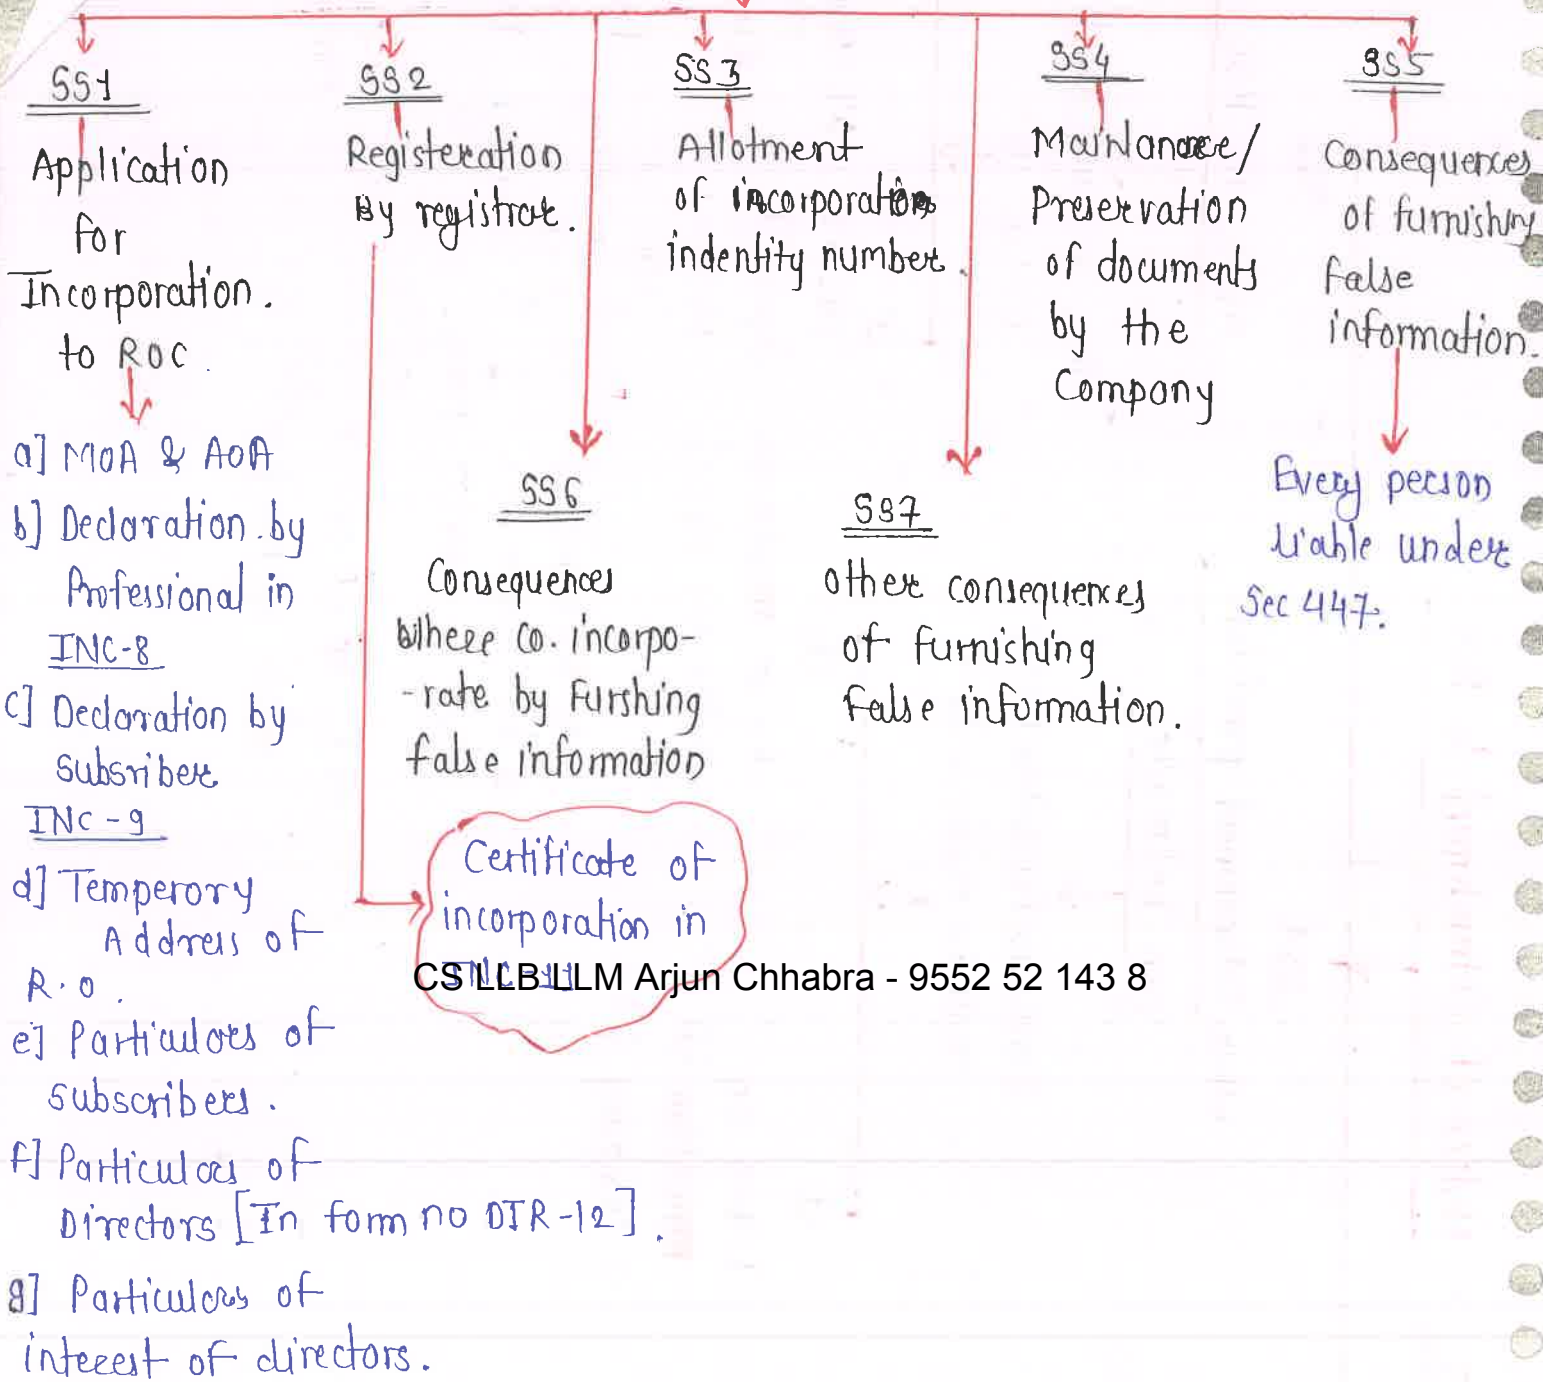 SS1
Application
for
Incorporation.
to ROC.
a] MOA & AOA
b] Declaration by
Professional in
INC-8
c] Declaration by
Subsriber
INC-9
d] Temperory
Address of
R.O.
e] Particulars of
subscribers.
f] Particulars of
Directors [In form no DIR-12].
g] Particulars of
interest of directors.
SS2
Registeration
By registrar.
Certificate of
incorporation in
INC-11
SS3
Allotment
of incorporation
indentity number.
SS4
Maintanance/
Preservation
of documents
by the
Company
SS5
Consequences
of furnishing
false
information.
Every person
liable under
Sec 447.
SS6
Consequences
Where co. incorpo-
-rate by Furshing
false information
SS7
other consequences
of furnishing
false information.
CS LLB LLM Arjun Chhabra - 9552 52 143 8